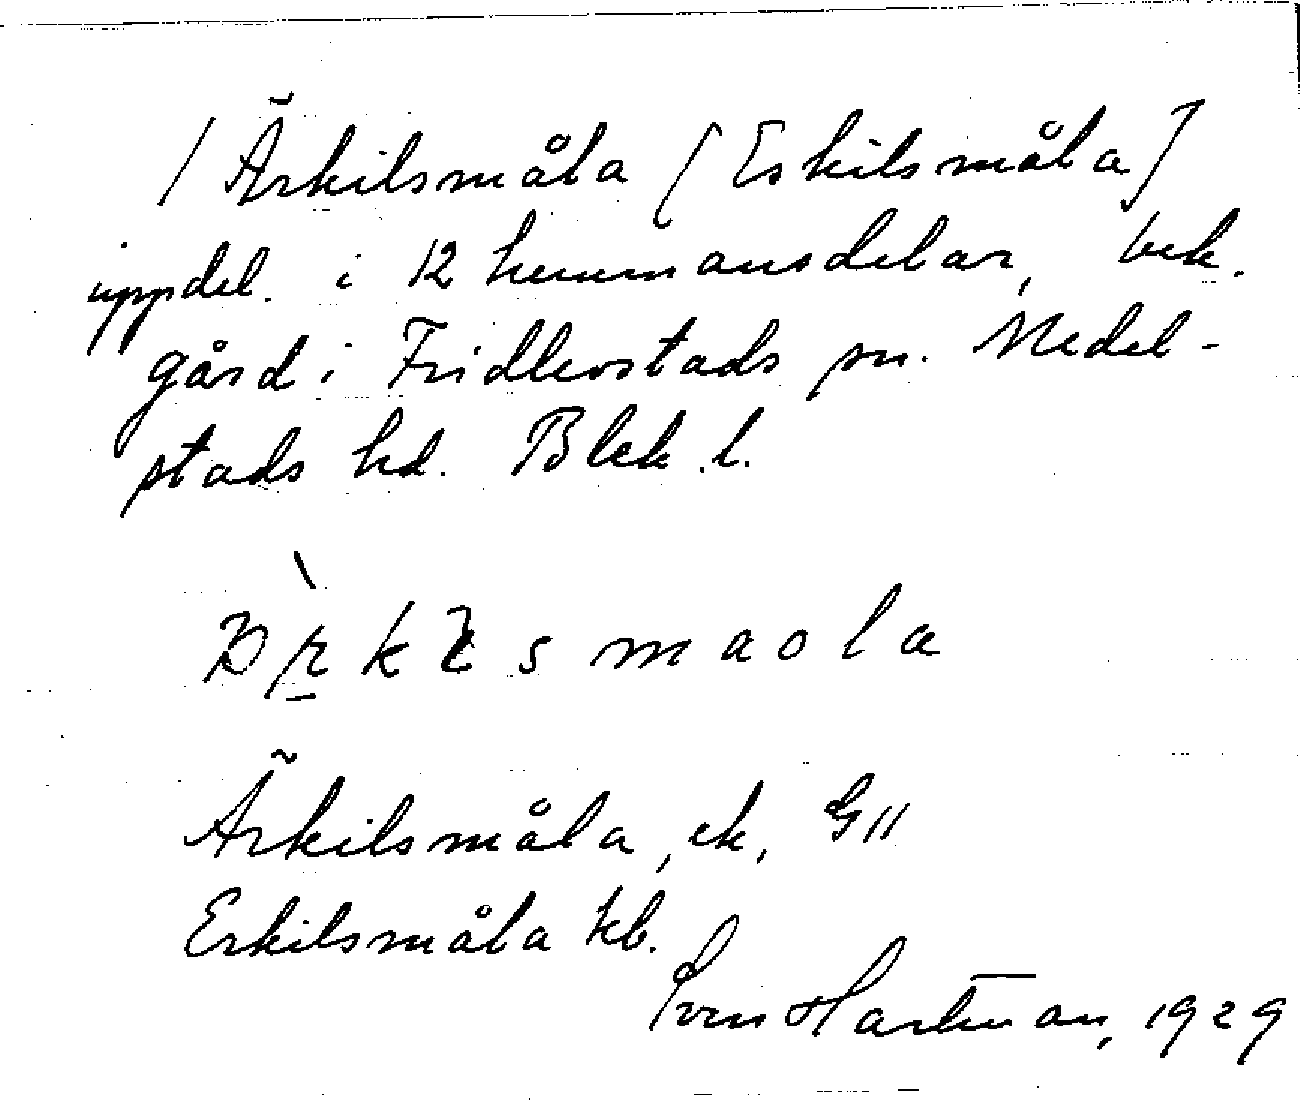 / Ärkilsmåla [Eskilsmåla]
uppdel. i 12 hemmansdelar, bek.
gård i Fridlevstads sn. Medel-
stads hd. Blek. l.
Ärkilsmåla, ek, G11
Erkilsmåla kb.
Sven Hartman, 1929